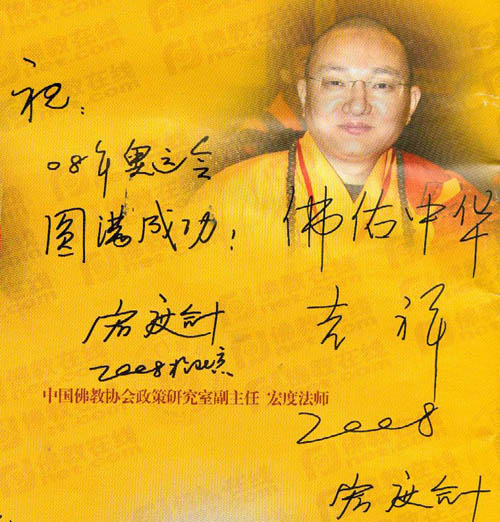 祝：
08年奥运会
圆满成功！
宏度合十
2008于北京
佛佑中华
吉祥
2008
宏度合十
中国佛教协会政策研究室副主任 宏度法师
佛教在线